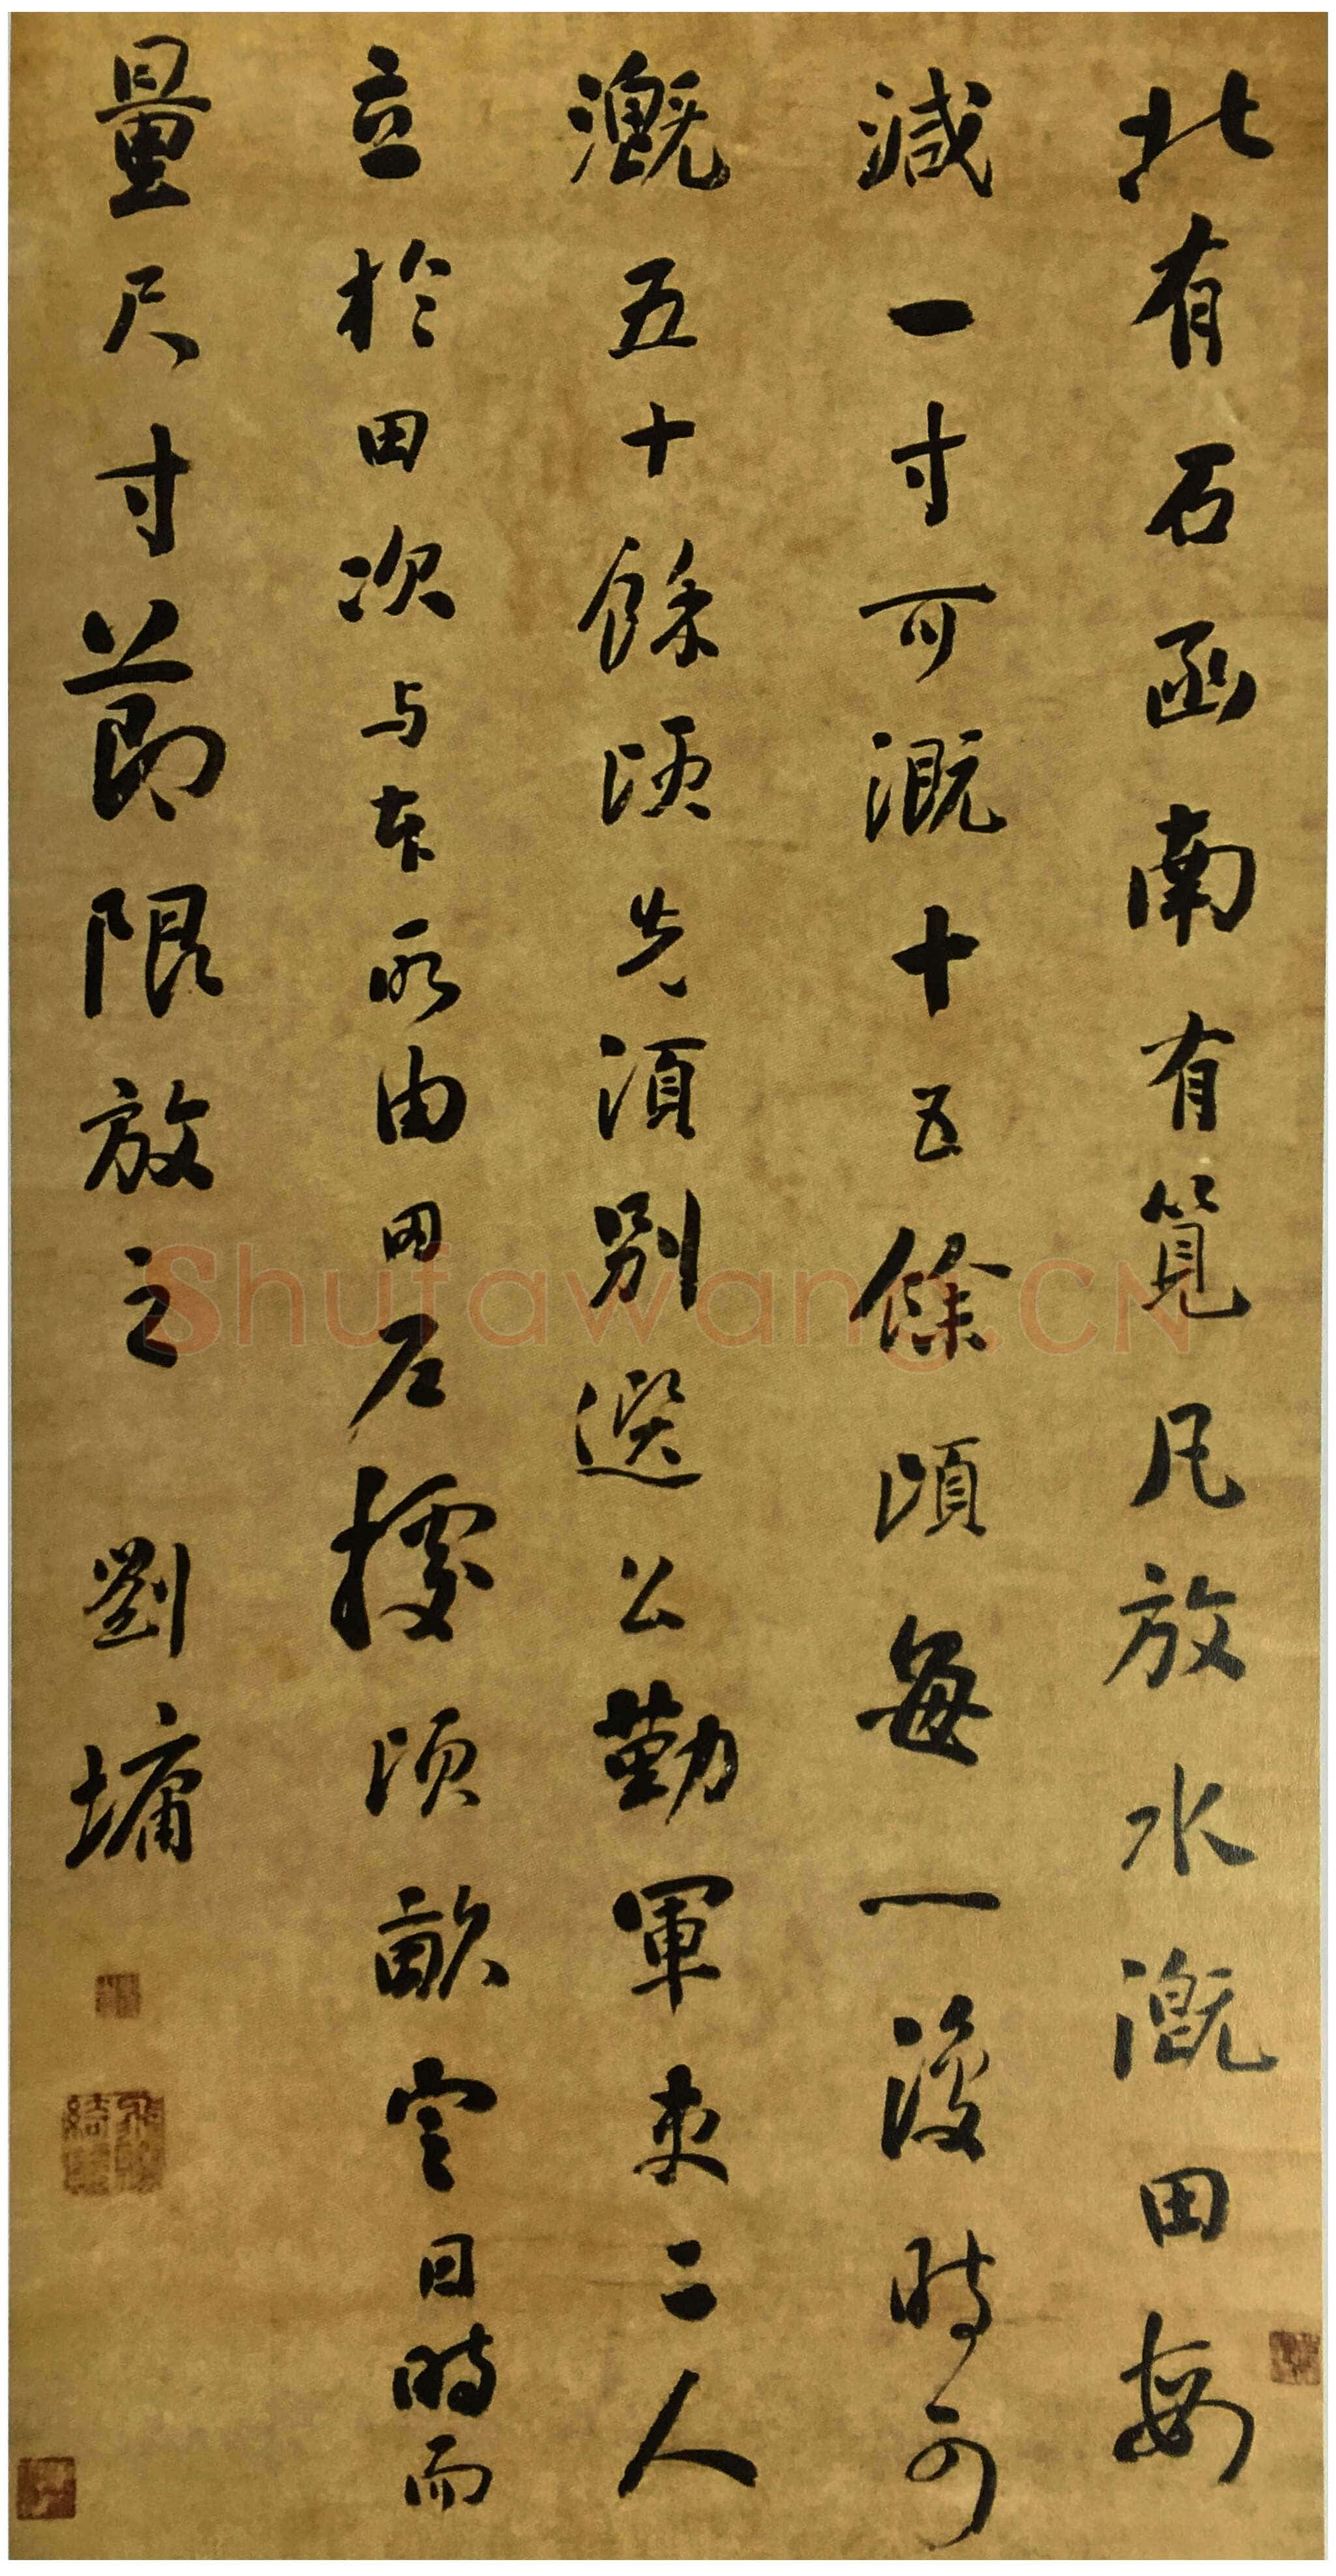 北有石函南有筧凡放水溉田每
減一寸可溉十五餘頃每一復時可
溉五十餘頃先須別選公勤軍吏二人
立於田次与本所由田據頃畝定日時而
量尺寸節限放之 劉墉
Shufawang.CN